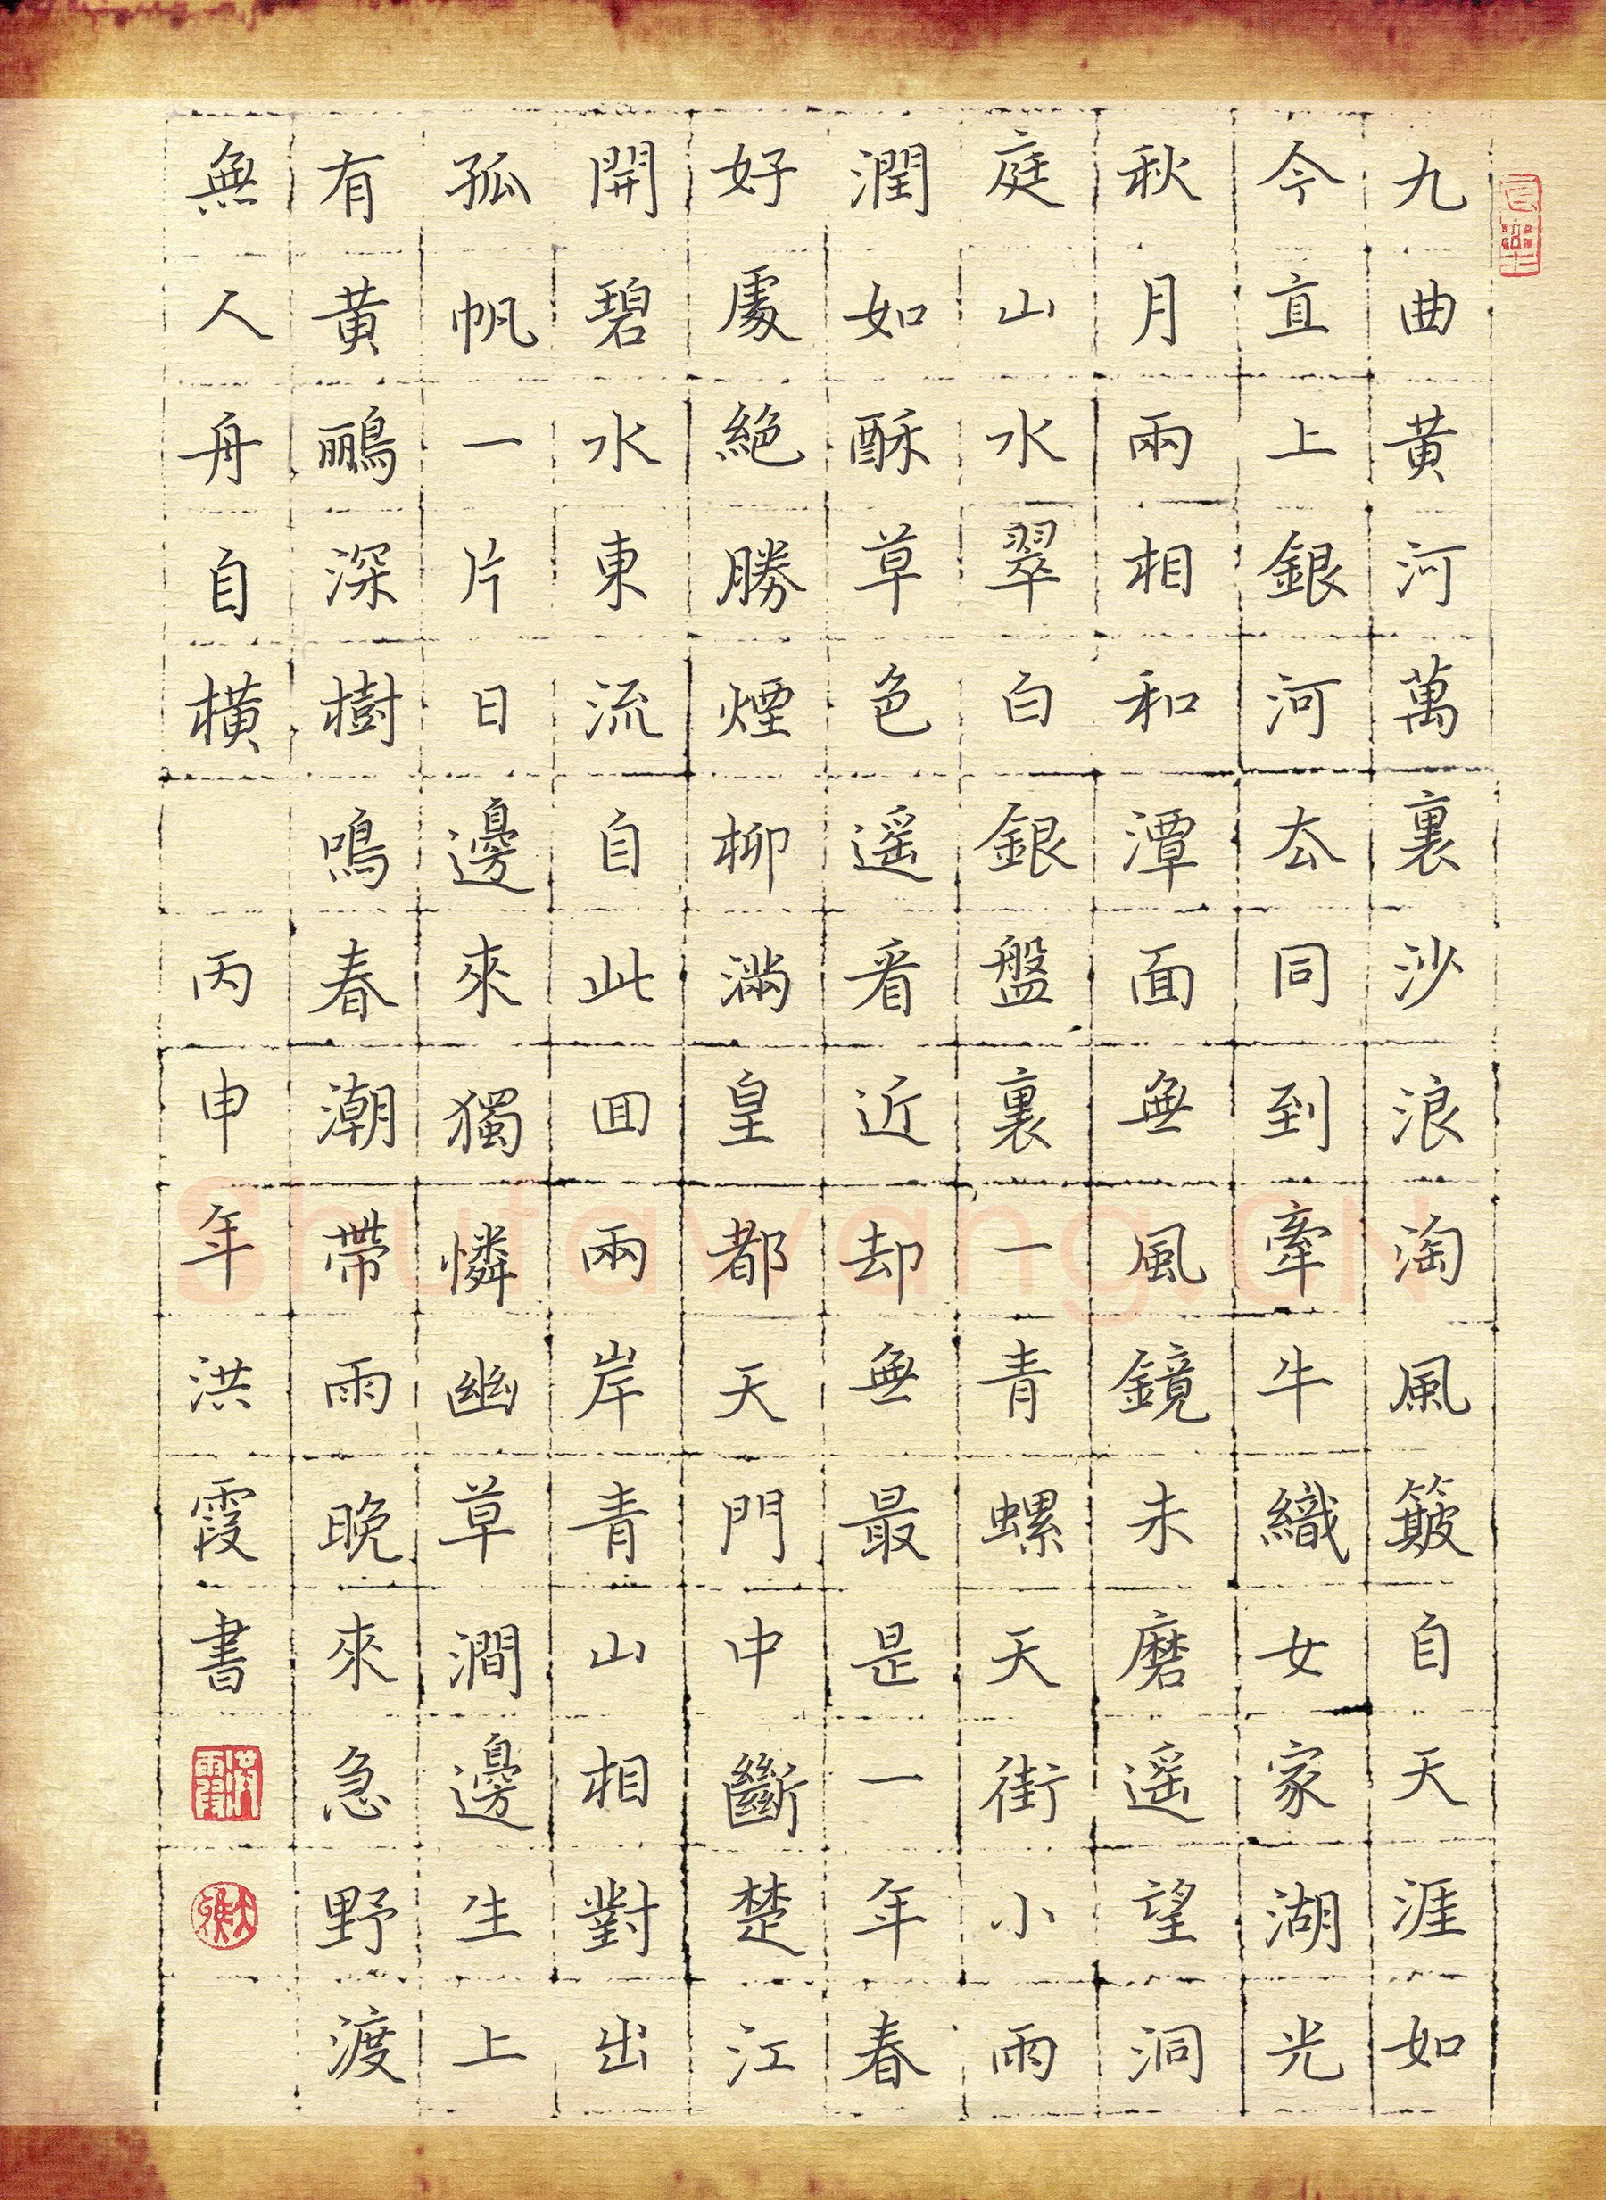 九曲黄河萬裏沙浪淘風簸自天涯如
今直上銀河厺同到牽牛織女家湖光
秋月兩相和潭面無風鏡未磨遥望洞
庭山水翠白銀盤裏一青螺天街小雨
潤如酥草色遥看近却無最是一年春
好處絕勝煙柳滿皇都天門中斷楚江
開碧水東流自此回兩岸青山相對出
孤帆一片日邊來獨憐幽草澗邊生上
有黄鸝深樹鳴春潮帶雨晚來急野渡
無人舟自橫 丙申年洪霞書
洪霞
Shufawang.CN